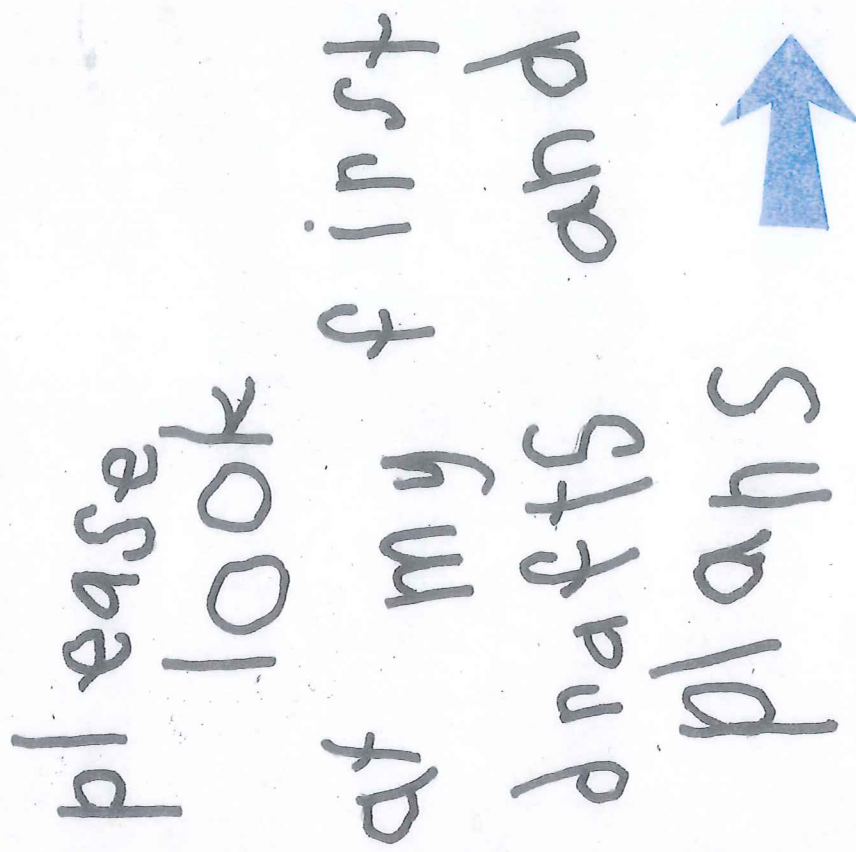 please
look
at my first
drafts and
plans